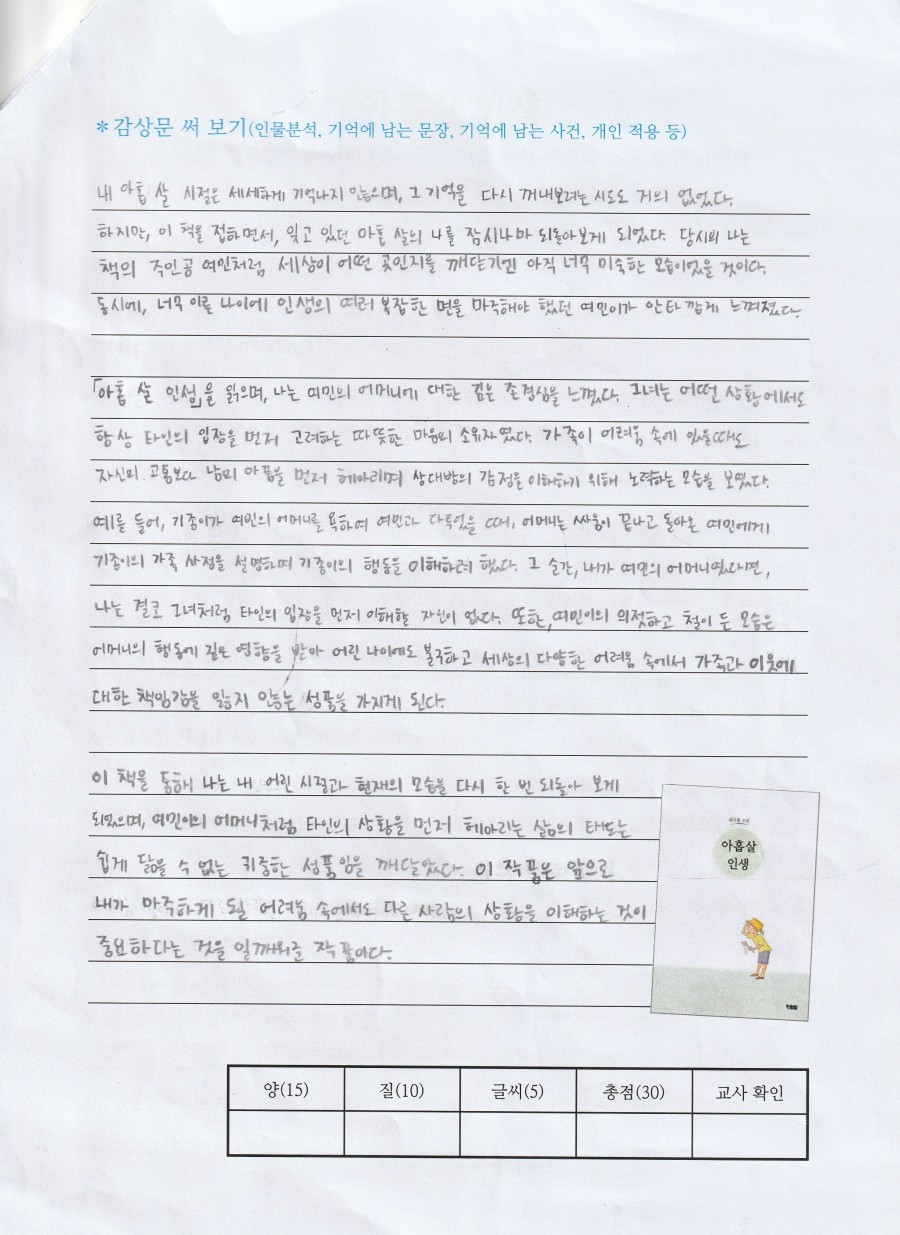 * 감상문 써 보기(인물분석, 기억에 남는 문장, 기억에 남는 사건, 개인 적용 등)
내 아홉 살 시절은 세세하게 기억나지 않으며, 그 기억을 다시 꺼내보려는 시도도 거의 없었다.
하지만, 이 책을 접하면서, 잊고 있던 아홉 살의 나를 잠시나마 되돌아보게 되었다. 당시의 나는
책의 주인공 여민처럼 세상이 어떤 곳인지를 깨닫기엔 아직 너무 미숙한 모습이었을 것이다.
동시에, 너무 이른 나이에 인생의 여러 복잡한 면을 마주해야 했던 여민이가 안타깝게 느껴졌다.
「아홉 살 인생」을 읽으며, 나는 여민의 어머니에 대한 깊은 존경심을 느꼈다. 그녀는 어떤 상황에서도
항상 타인의 입장을 먼저 고려하는 따뜻한 마음의 소유자였다. 가족이 어려움 속에 있을때도
자신의 고통보다 남의 아픔을 먼저 헤아리며 상대방의 감정을 이해하기 위해 노력하는 모습을 보였다.
예를 들어, 기종이가 여민의 어머니를 욕하여 여민과 다투었을 때, 어머니는 싸움이 끝나고 돌아온 여민에게
기종이의 가족 사정을 설명하며 기종이의 행동을 이해하려 했다. 그 순간, 내가 여민의 어머니였다면,
나는 결코 그녀처럼 타인의 입장을 먼저 이해할 자신이 없다. 또한, 여민이의 의젓하고 철이 든 모습은
어머니의 행동에 깊은 영향을 받아 어린 나이에도 불구하고 세상의 다양한 어려움 속에서 가족과 이웃에
대한 책임감을 잃지 않는 성품을 가지게 된다.
이 책을 통해 나는 내 어린 시절과 현재의 모습을 다시 한 번 되돌아 보게
되었으며, 여민이의 어머니처럼 타인의 상황을 먼저 헤아리는 삶의 태도는
쉽게 닮을 수 없는 귀중한 성품임을 깨달았다. 이 작품은 앞으로
내가 마주하게 될 어려움 속에서도 다른 사람의 상황을 이해하는 것이
중요하다는 것을 일깨워준 작품이다.
아홉살
인생
양(15) 질(10) 글씨(5) 총점(30) 교사 확인